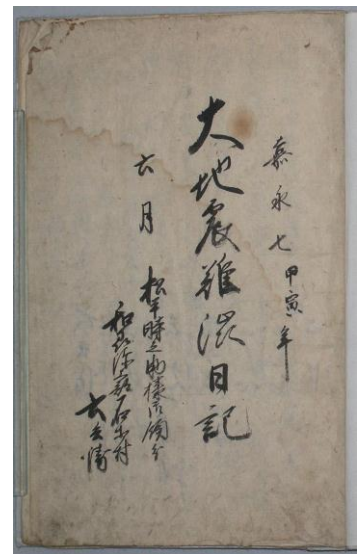 嘉永七甲寅年
大地震難渋日記
六月
松平時之助様御領分
和州添
村